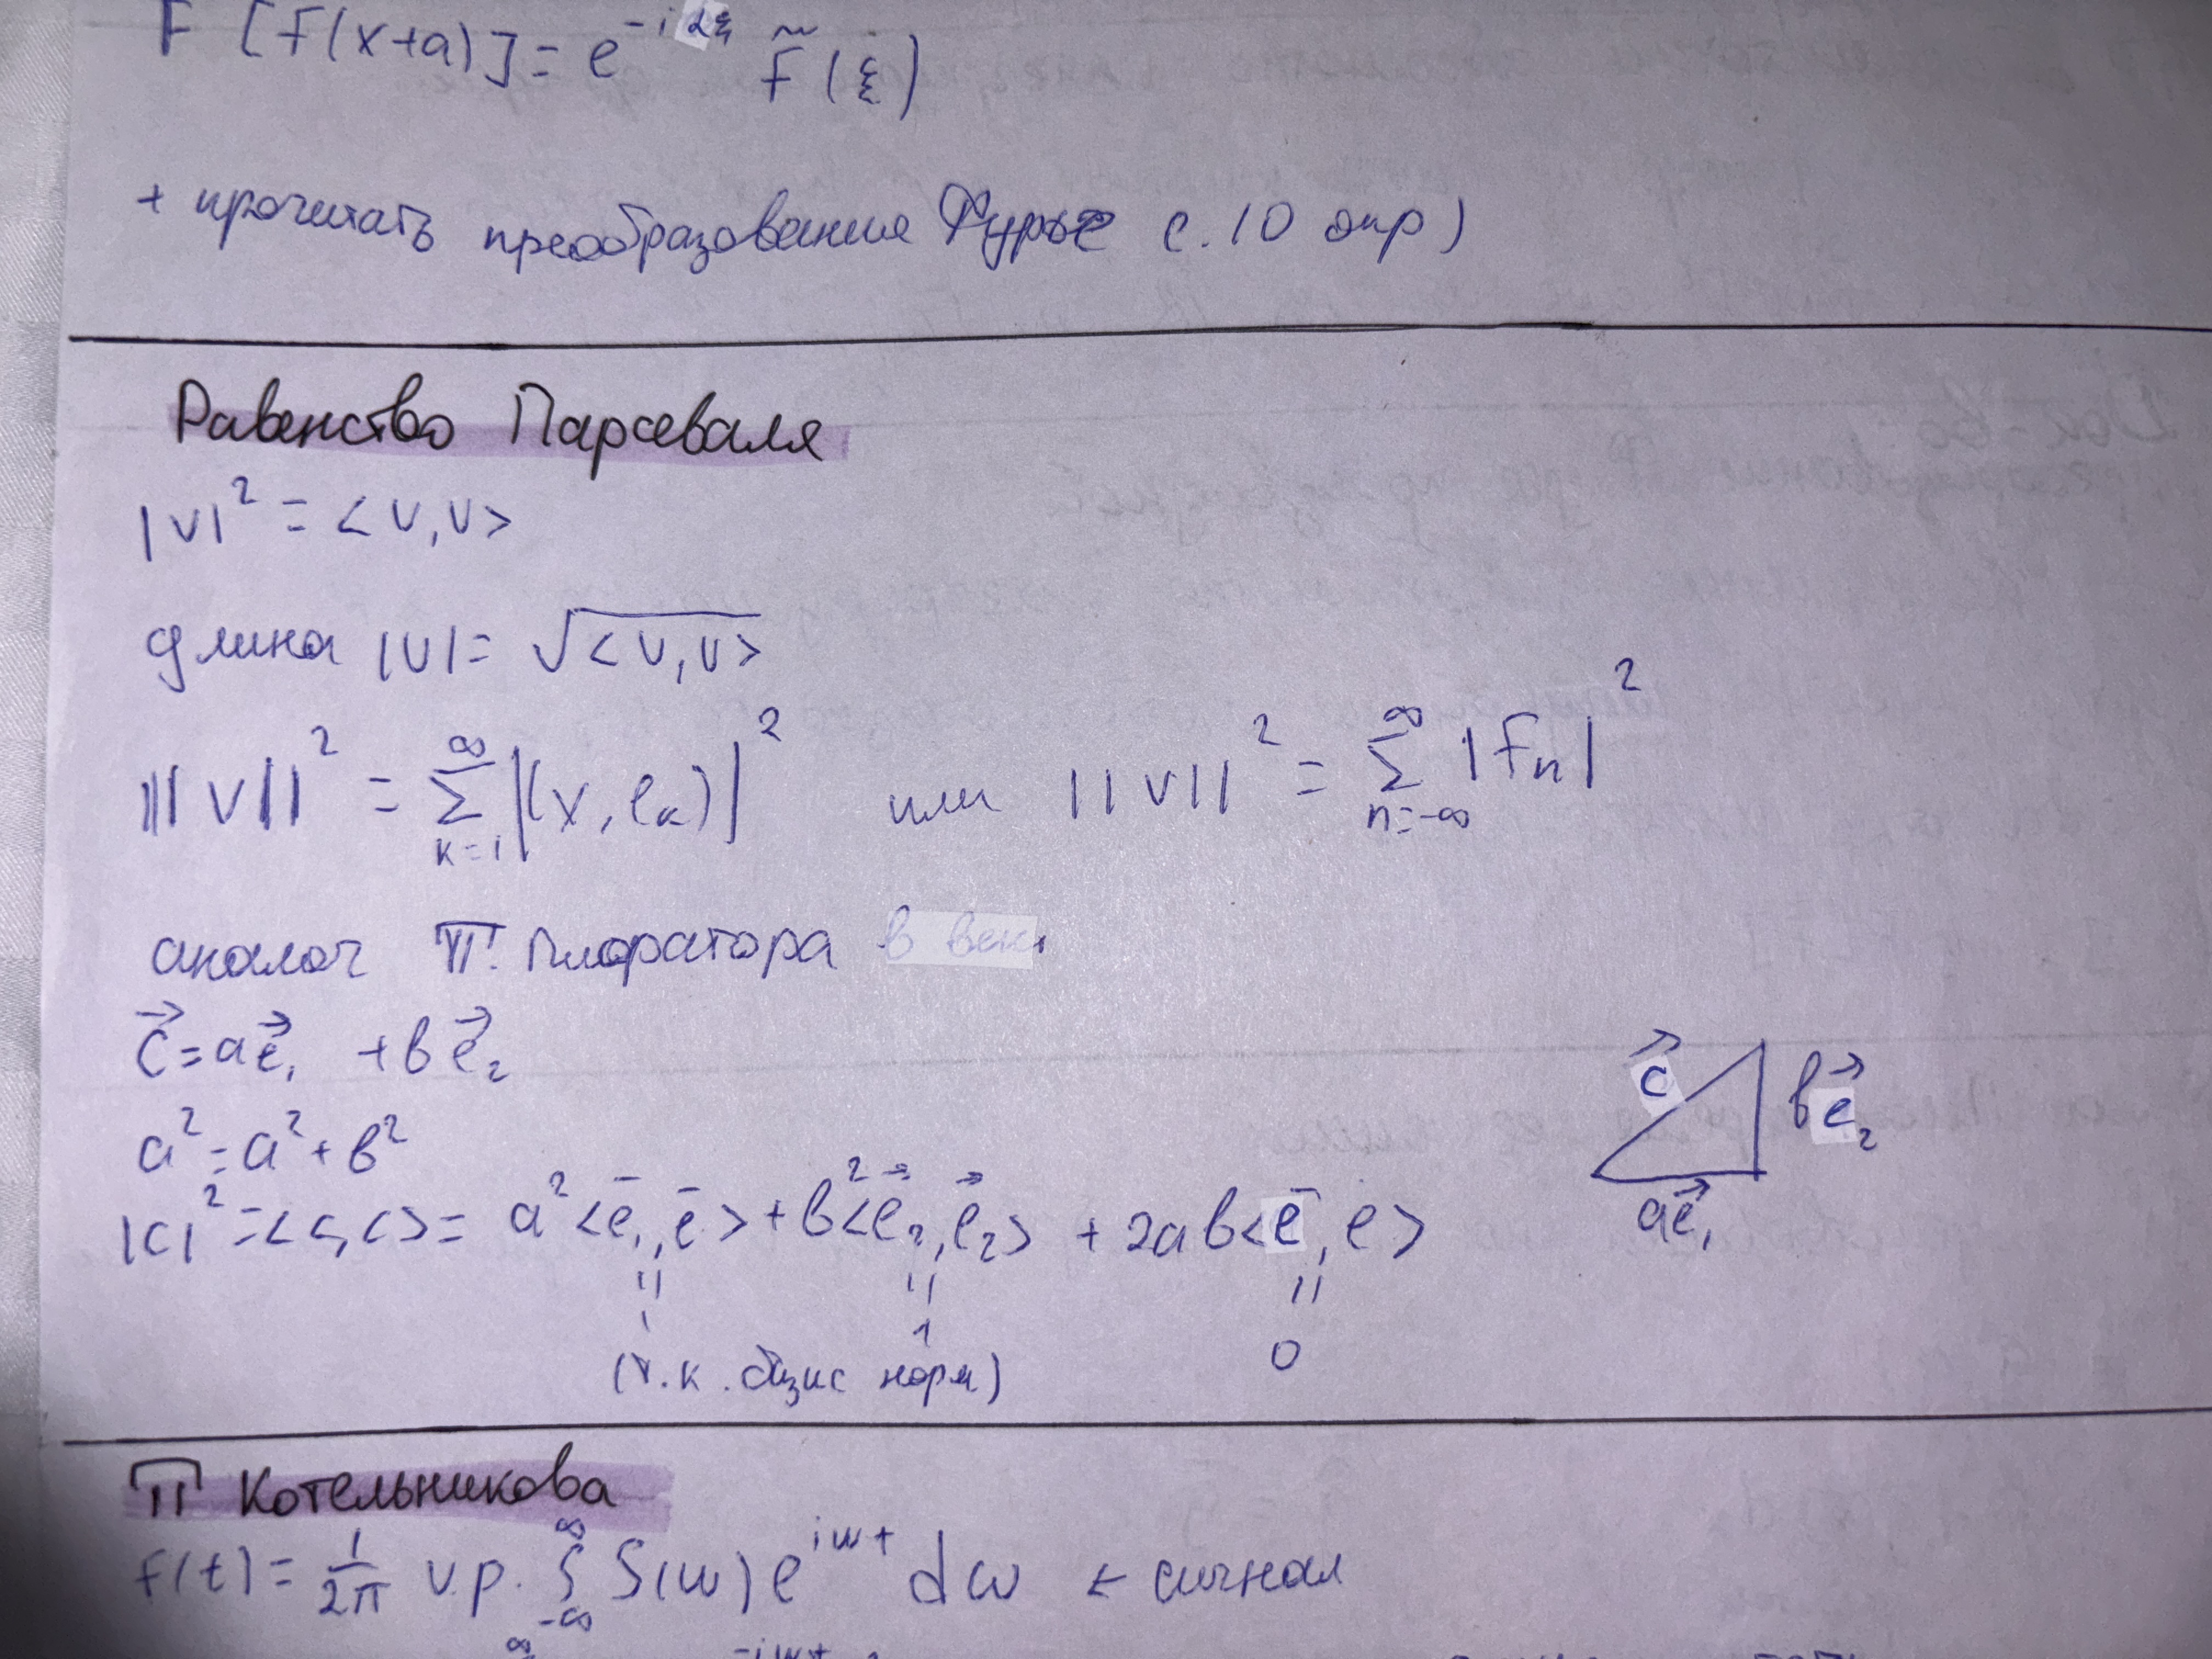 F [f(x+a)] = e^{-iαξ} f̃(ξ)
+ прочитать преобразование Фурье с. 10 опр)
Равенство Парсеваля
|v|² = <v,v>
длина |v| = √<v,v>
||v||² = ∑_{k=1}^{∞} |(x, e_k)|² или ||v||² = ∑_{n=-∞}^{∞} |f_n|²
аналог П. Пифагора в век
c⃗ = ae⃗₁ + be⃗₂
a² = a² + b²
|c|² = <c,c> = a²<e̅₁,e̅> + b²<e⃗₂,e⃗₂> + 2ab<e̅,e>
" " "
1 1 0
(т.к. базис норм)
c⃗
be⃗₂
ae⃗₁
П Котельникова
f(t) = 1/2π v.p. ∫_{-∞}^{∞} S(w) e^{iwt} dw ← сигнал